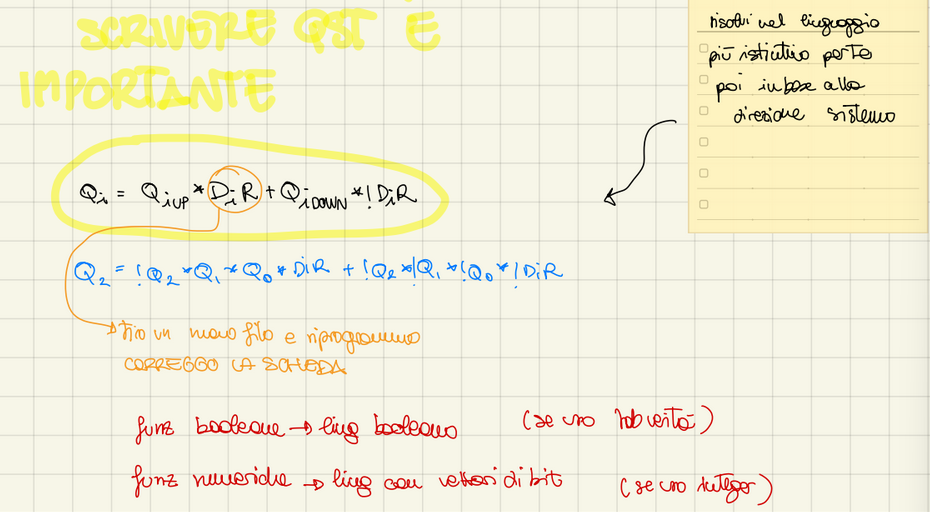 SCRIVERE QST È
IMPORTANTE
risolvi nel linguaggio
più istintivo per te
poi in base alla
direzione sistemo
Qi = QiUP * DiR + QiDOWN * !DiR
Q2 = !Q2 * Q1 * Q0 * DiR + !Q2 * !Q1 * !Q0 * !DiR
tiro un nuovo filo e riprogrammo
CORREGGO LA SCHEDA
funz booleane → ling booleano (se uso tab verità)
funz numeriche → ling con vettori di bit (se uso integer)